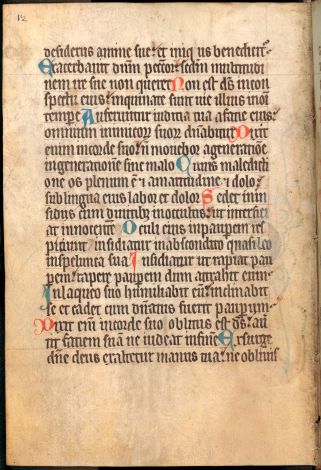 12
desideriis anime sue: et iniq̄us benedicit̄:
Exacerbauit dn̄m pecc̄or: scd̄m multitudi
nem ire sue non queret: Non est ds̄ in con
spectu eius: inquinate sunt uie illius in oī
tempe Auferuntur iudicia tua a facie eius:
omnium inimicoꝝ suoꝝ dn̄abitur Dixit
enim in corde suo: n̄ mouebor a generatiōe
in generationē sine malo Cuius maledicti
one os plenum ē: ⁊ amaritudine ⁊ dolo:
sub lingua eius labor et dolor Sedet in in
sidiis cum diuitibꝫ in occultis: ut interfici
at innocentē Oculi eius in pauperem re
spiciunt: insidiatur in abscondito quasi leo
in spelunca sua Insidiatur ut rapiat pau
perem: rapere paupem dum attrahit eum:
In laqueo suo humiliabit eū: inclinabit
se et cadet cum dn̄atus fuerit pauperum:
Dixit enī in corde suo oblitus est ds̄: au̅
tit faciem suā ne uideat in finē Exsurge
dn̄e deus exaltetur manus tua: ne obliuis